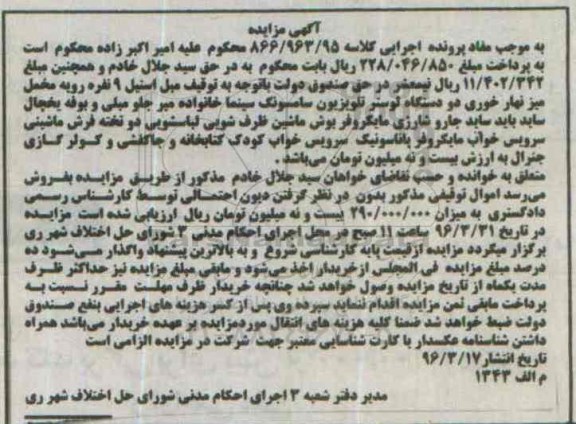 آگهی مزایده
به موجب مفاد پرونده اجرایی کلاسه ۸۶۶/۹۶۳/۹۵ محکوم علیه امیر اکبر زاده محکوم است
به پرداخت مبلغ ۲۲۸/۰۴۶/۸۵۰ ریال بابت محکوم به در حق سید جلال خادم و همچنین مبلغ
۱۱/۴۰۲/۳۴۲ ریال نیمعشر در حق صندوق دولت باتوجه به توقیف مبل استیل ۹ نفره رویه مخمل
میز نهار خوری دو دستگاه لوستر تلویزیون سامسونگ سینما خانواده میز جلو مبلی و بوفه یخچال
ساید باید ساید جارو شارژی مایکروفر بوش ماشین ظرف شویی لباسشویی دو تخته فرش ماشینی
سرویس خواب مایکروفر پاناسونیک سرویس خواب کودک کتابخانه و جاکفشی و کولر گازی
جنرال به ارزش بیست و نه میلیون تومان میباشد .
متعلق به خوانده و حسب تقاضای خواهان سید جلال خادم مذکور از طریق مزایده بفروش
می‌رسد اموال توقیفی مذکور بدون در نظر گرفتن دیون احتمالی توسط کارشناس رسمی
دادگستری به میزان ۲۹۰/۰۰۰/۰۰۰ بیست و نه میلیون تومان ریال ارزیابی شده است مزایده
در تاریخ ۹۶/۳/۳۱ ساعت ۱۱ صبح در محل اجرای احکام مدنی ۳ شورای حل اختلاف شهر ری
برگزار میگردد مزایده از قیمت پایه کارشناسی شروع و به بالاترین پیشنهاد واگذار می‌شود ده
درصد مبلغ مزایده فی المجلس از خریدار اخذ می‌شود و مابقی مبلغ مزایده نیز حداکثر ظرف
مدت یکماه از تاریخ مزایده وصول خواهد شد چنانچه خریدار ظرف مهلت مقرر نسبت به
پرداخت مابقی ثمن مزایده اقدام ننماید سپرده وی پس از کسر هزینه های اجرایی بنفع صندوق
دولت ضبط خواهد شد ضمنا کلیه هزینه های انتقال موردمزایده بر عهده خریدار می‌باشد همراه
داشتن شناسنامه عکسدار یا کارت شناسایی معتبر جهت شرکت در مزایده الزامی است
تاریخ انتشار ۹۶/۳/۱۷
م الف ۱۳۴۳
مدیر دفتر شعبه ۳ اجرای احکام مدنی شورای حل اختلاف شهر ری